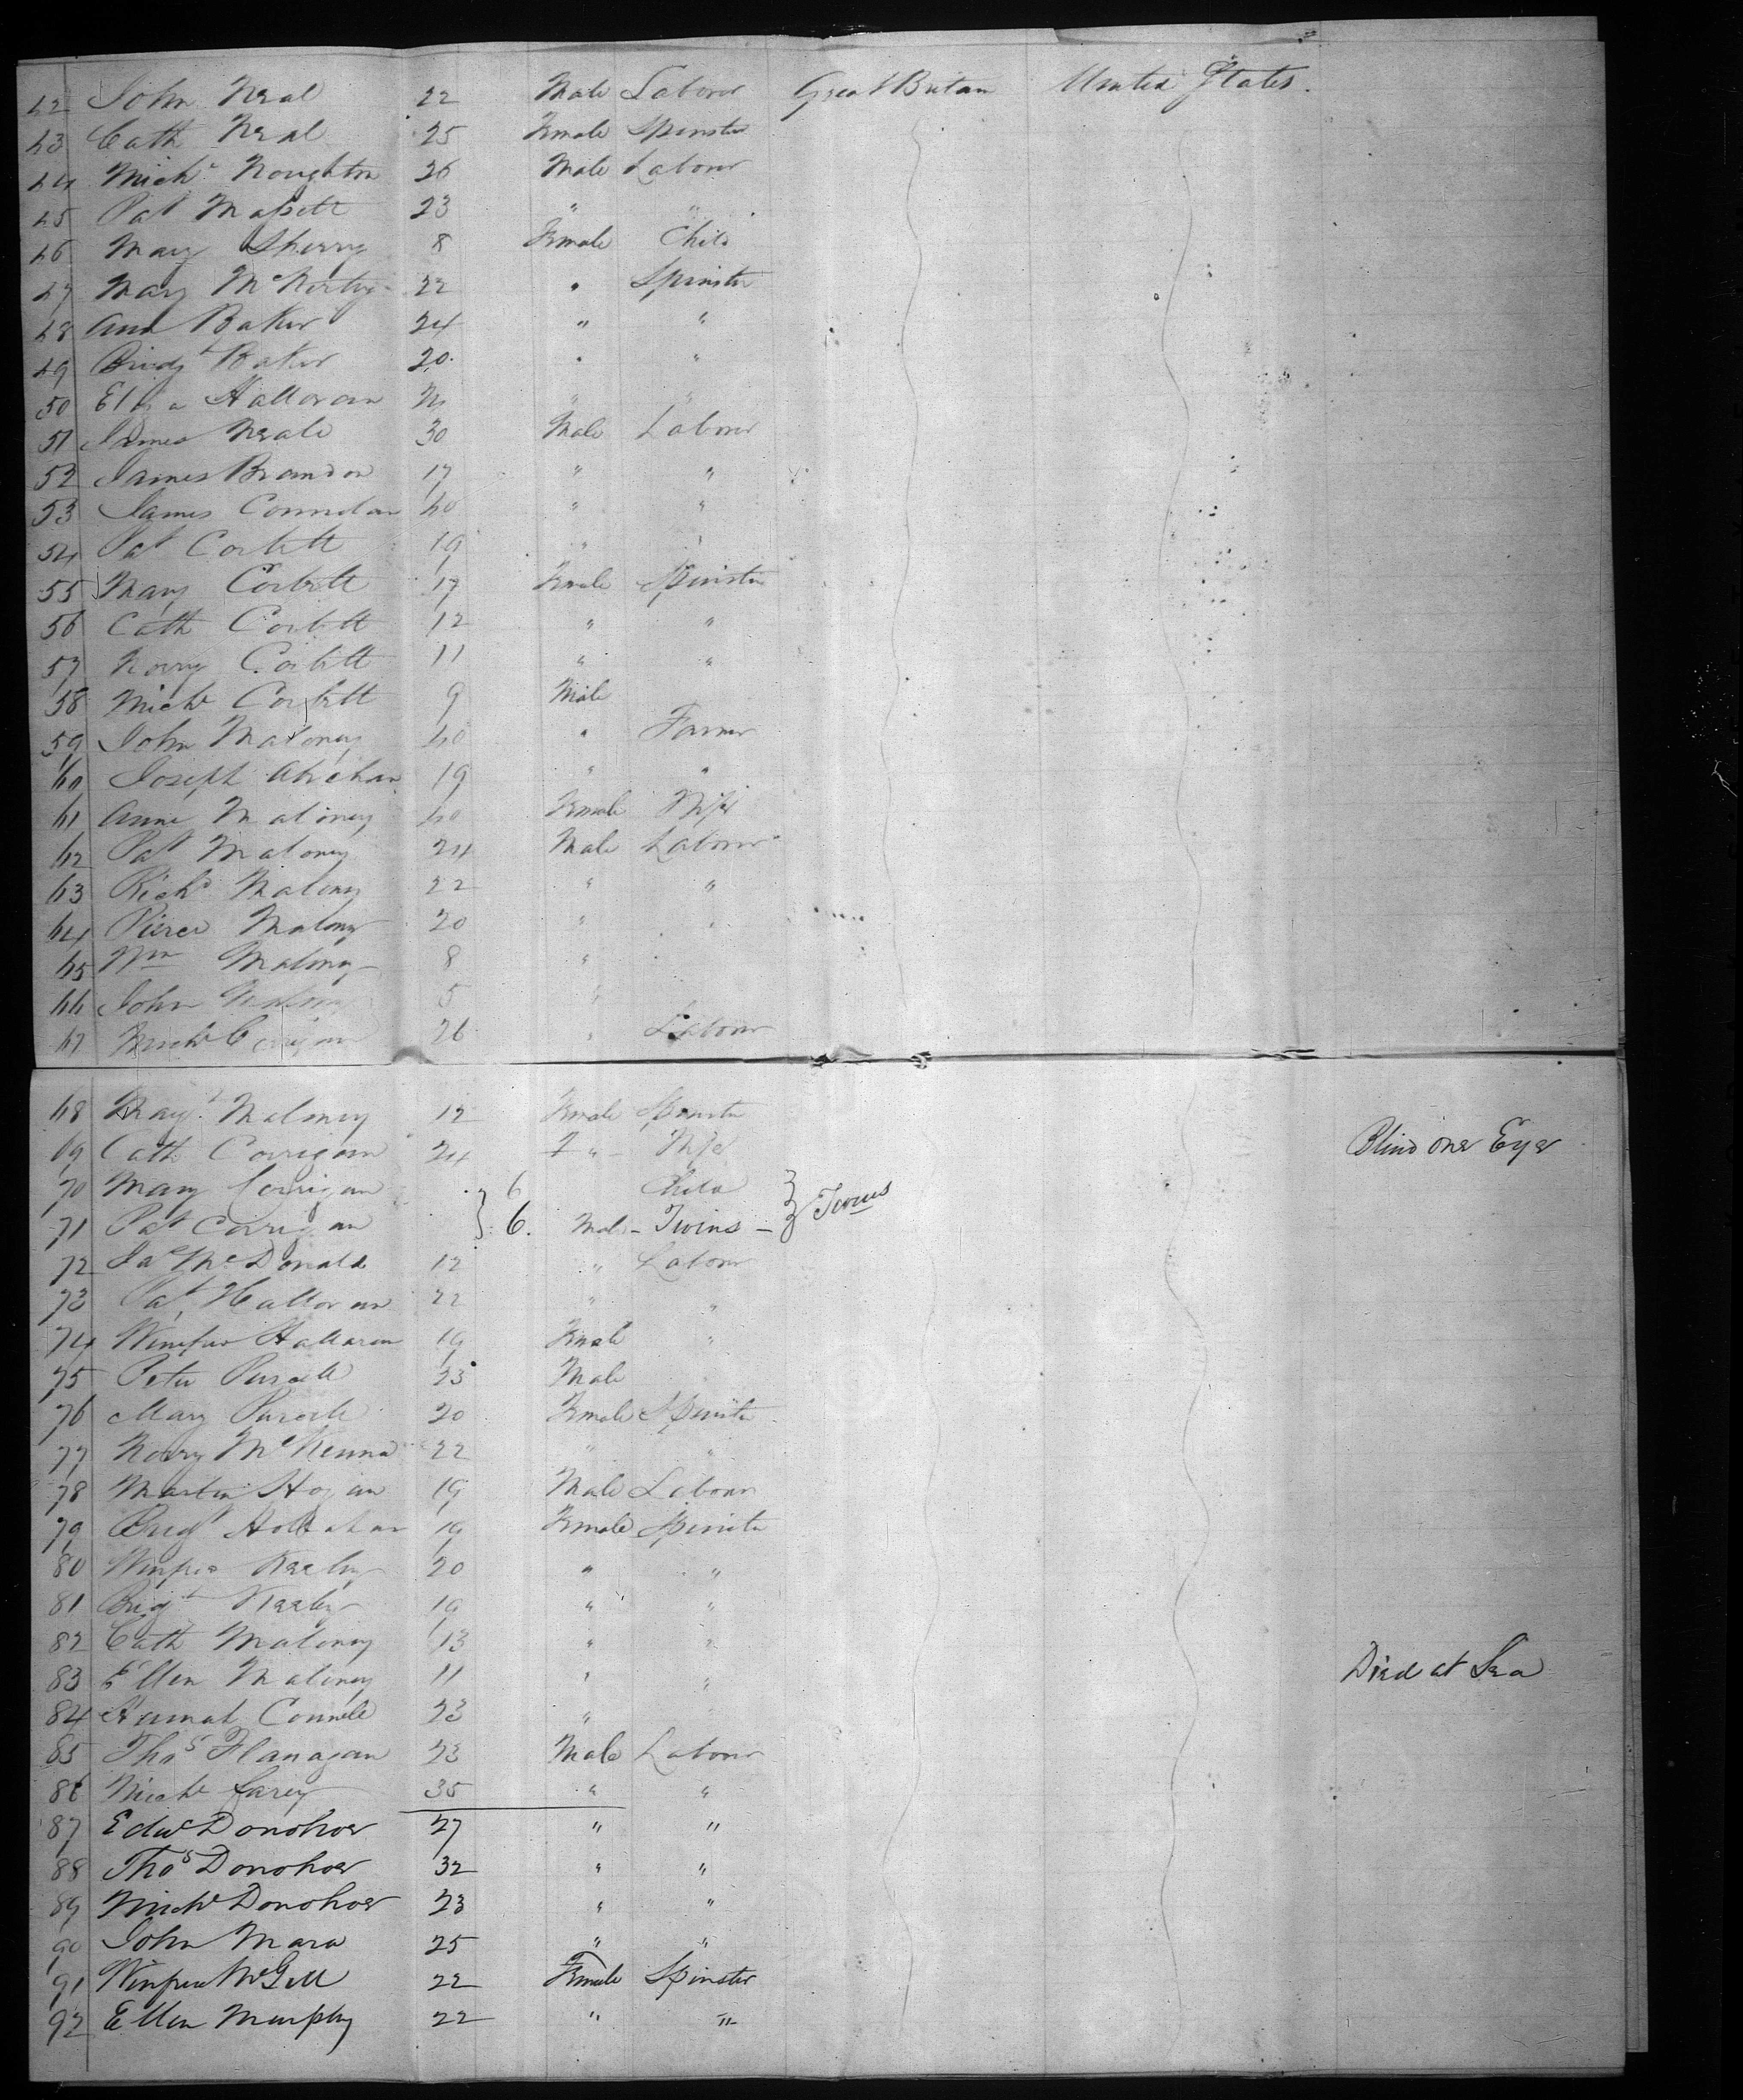 42 John Neal 22 Male Laborer Great Britain United States.
43 Cath Neal 25 Female Spinster
44 Michl Noughton 26 Male Laborer
45 Pat 23 " "
46 Mary Sherry 8 Female Child
47 Mary 22 " Spinster
48 Ann Baker 24 " "
49 Bridgt Baker 20 " "
50 Eliza Halloran " "
51 James Neale 30 Male Laborer
52 James Brandon 17 " "
53 James 40 " "
54 Pat Corbett 19 " "
55 Mary Corbett 17 Female Spinster
56 Cath Corbett 12 " "
57 Norry Corbett 11 " "
58 Michl Corbett 9 Male
59 John Maloney 40 " Farmer
60 Joseph 19 " "
61 Anne Maloney 40 Female Wife
62 Pat Maloney 24 Male Laborer
63 Richd Maloney 22 " "
64 Pierce Malony 20 " "
65 Wm Malony 8 "
66 John Malony 5 "
67 Michl Corrigan 26 " Laborer
68 Magt Maloney 12 Female Spinster
69 Cath Corrigan 24 F " Wife Blind one Eye
70 Mary Corrigan 6 Child
71 Pat Corrigan 6. Male - Twins - Twins
72 Jas McDonald 12 " Laborer
73 Pat Halloran 22 " "
74 Winifred Halloran 19 Female "
75 Peter Purcell 33 Male
76 Mary Purcell 20 Female Spinster
77 Norry McKenna 22 " "
78 Martin Hogan 19 Male Laborer
79 Brigt 19 Female Spinster
80 20 " "
81 Brigt 19 " "
82 Cath Maloney 13 " "
83 Ellen Maloney 11 " " Died at Sea
84 Connell 23 "
85 Thos Flanagan 23 Male Laborer
86 Michl Carey 35 " "
87 Edwd Donohoe 27 " "
88 Thos Donohoe 32 " "
89 Michl Donohoe 23 " "
90 John Mara 25 " "
91 McGill 22 Female Spinster
92 Ellen Murphy 22 " "